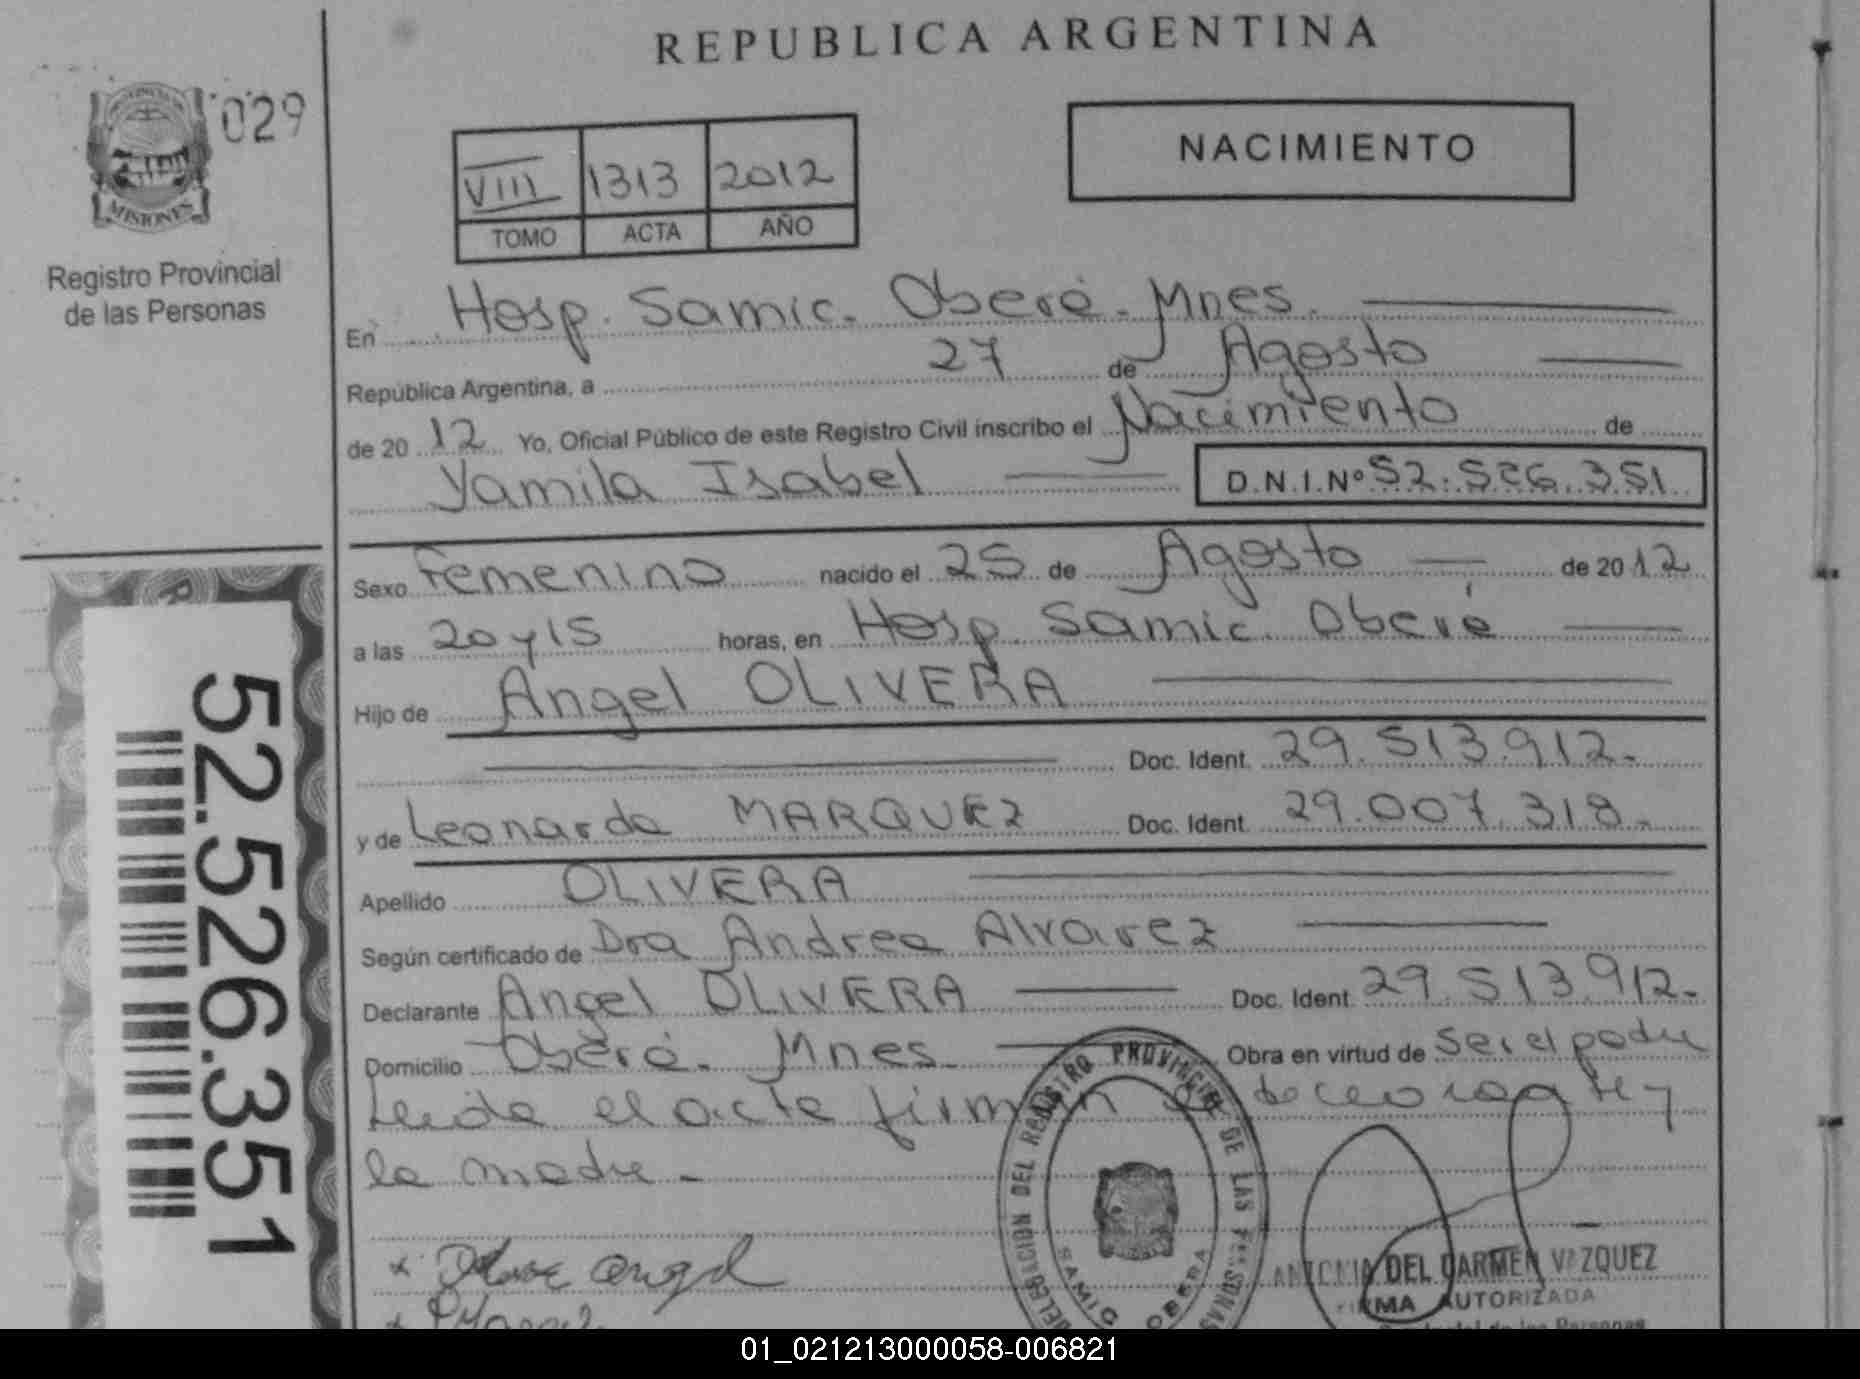 REPUBLICA ARGENTINA
029
MISIONES
Registro Provincial
de las Personas
NACIMIENTO
VIII 1313 2012
TOMO ACTA AÑO
En Hosp. Samic. Oberá. Mnes.
República Argentina, a 27 de Agosto
de 2012 Yo, Oficial Público de este Registro Civil inscribo el Nacimiento de
Yamila Isabel D.N.I.Nº 52.526.351
Sexo Femenino nacido el 25 de Agosto de 2012
a las 20 y 15 horas, en Hosp. Samic. Oberá
Hijo de Angel OLIVERA
Doc. Ident. 29.513.912.-
y de Leonarda MARQUEZ Doc. Ident. 29.007.318.-
Apellido OLIVERA
Según certificado de Dra Andrea Alvarez
Declarante Angel OLIVERA Doc. Ident. 29.513.912.-
Domicilio Oberá. Mnes. Obra en virtud de ser el padre
Leida el acta firman el declarante y
la madre.-
52.526.351
DELEGACION DEL REGISTRO PROVINCIAL DE LAS PERSONAS
SAMIC OBERA
ANTONIA DEL CARMEN VAZQUEZ
FIRMA AUTORIZADA
01_021213000058-006821